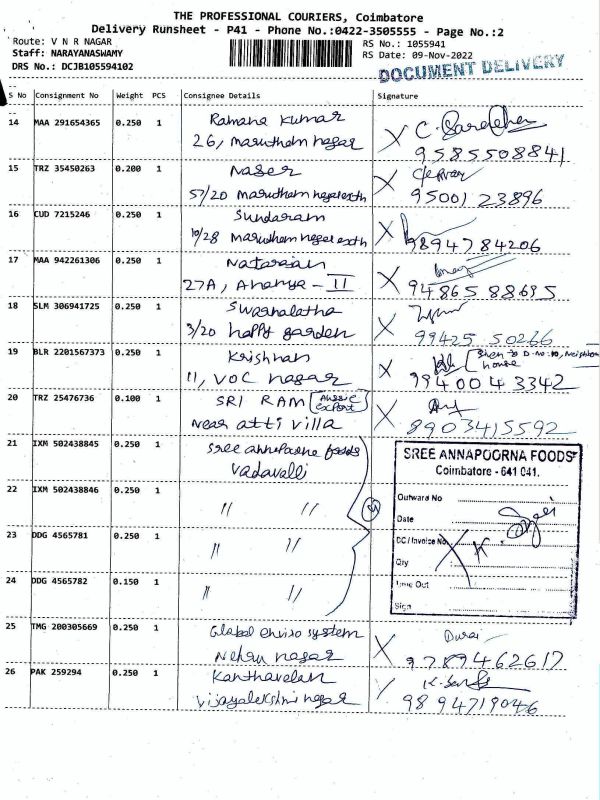 THE PROFESSIONAL COURIERS, Coimbatore
Delivery Runsheet - P41 - Phone No.:0422-3505555 - Page No.:2
Route: V N R NAGAR
Staff: NARAYANASWAMY
DRS No.: DCJB105594102
RS No.: 1055941
RS Date: 09-Nov-2022
DOCUMENT DELIVERY
S No Consignment No Weight PCS Consignee Details Signature
14 MAA 291654365 0.250 1 Ramana Kumar
26, Marutham nagar
9585508841
15 TRZ 35450263 0.200 1 Naser
57/20 Marutham nagar exth
95001 23896
16 CUD 7215246 0.250 1 Sundaram
10/28 Marutham nagar exth
9894784206
17 MAA 942261306 0.250 1 Natarajan
27A, Ananya - II
94865 88695
18 SLM 306941725 0.250 1 Swarnalatha
3/20 happy garden
99425 50266
19 BLR 2201567373 0.250 1 Krishnan
11, VOC nagar
Given to D.No:10, Neighbour house
994004 3342
20 TRZ 25476736 0.100 1 SRI RAM (Aussie Export)
Near atti villa
8903415592
21 IXM 502438845 0.250 1 Sree annapoorna foods
Vadavalli
22 IXM 502438846 0.250 1 " "
23 DDG 4565781 0.250 1 " "
24 DDG 4565782 0.150 1 " "
SREE ANNAPOORNA FOODS
Coimbatore - 641 041.
Outward No
Date
DC / Invoice No.
Qty
Time Out
Sign
25 TMG 200305669 0.250 1 Global enviro system
Nehru nagar
Durai
9789462617
26 PAK 259294 0.250 1 Kanthavelan
Vijayalakshmi nagar
9894719046